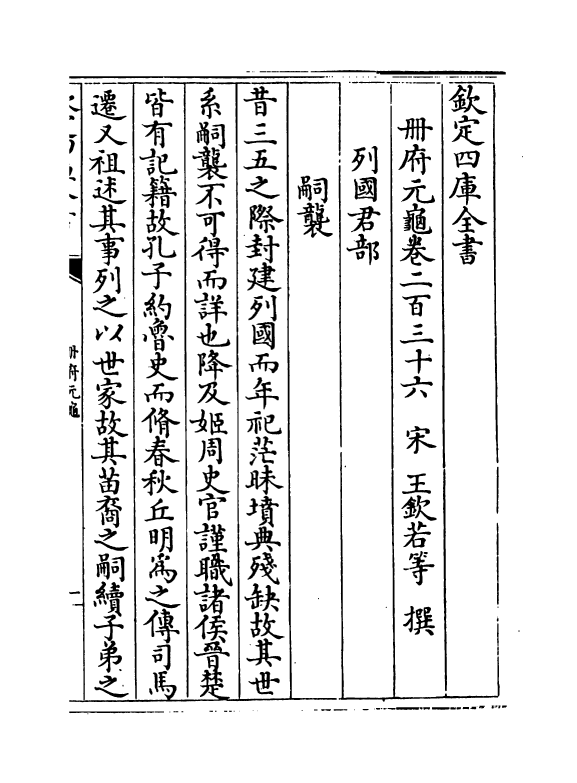 欽定四庫全書
冊府元龜卷二百三十六　宋　王欽若等　撰
列國君部
嗣襲
昔三五之際封建列國而年祀茫昧墳典殘缺故其世
系嗣襲不可得而詳也降及姬周史官謹職諸侯晉楚
皆有記籍故孔子約魯史而脩春秋丘明為之傳司馬
遷又祖述其事列之以世家故其苗裔之嗣續子弟之
冊府元龜
一